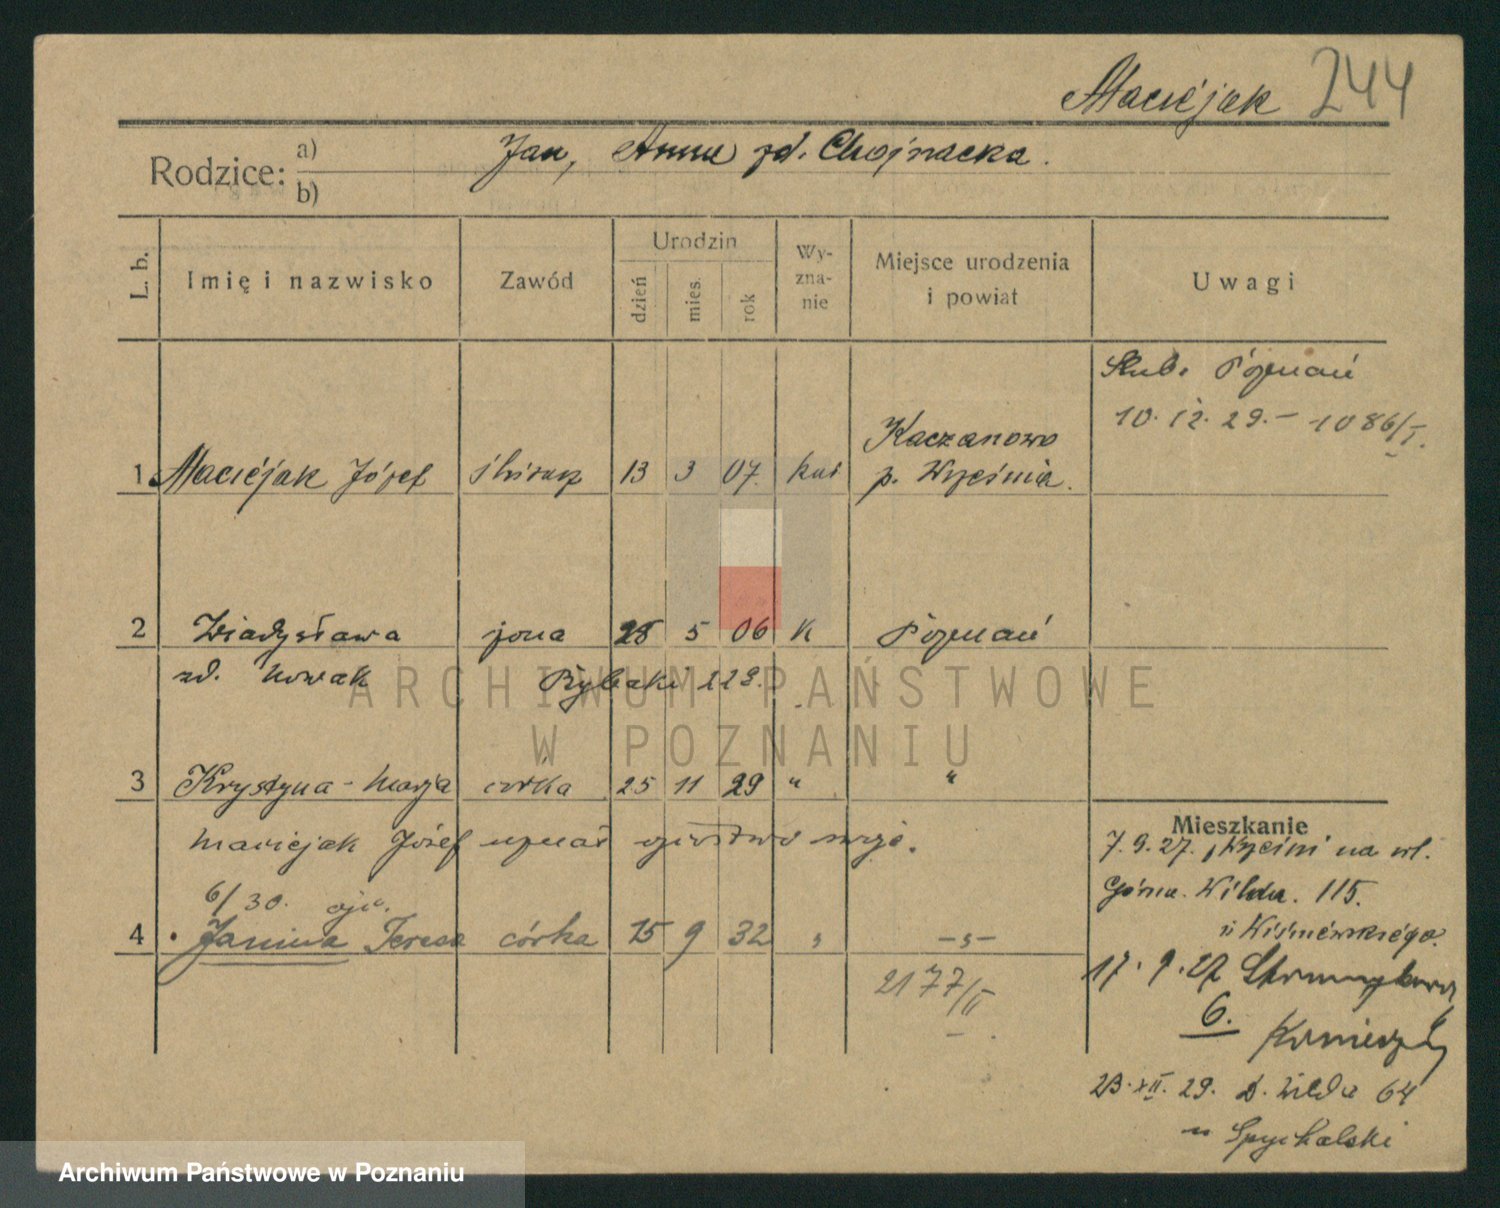 Maciéjak 244
Rodzice: a) Jan, Anna zd. Chojnacka.
b)
L. b. Imię i nazwisko Zawód Urodzin dzień mies. rok Wy-zna-nie Miejsce urodzenia i powiat Uwagi
Ślub. Poznań
10. 12. 29. – 1086/I.
Kaczanowo
1 Maciéjak Józef ślusarz 13 3 07. kat p. Września.
2 Władysława żona 28 5 06 K Poznań
zd. Nowak Rybaki 22
3 Krystyna - Marja córka 25 11 29 " "
Mieszkanie
Maciejak Józef uznał ojcostwo swoje.
7. 9. 27. z Wrześni na ul.
6/30. ojc.
Górna. Wilda. 115.
u Wiśniéwskiégo.
4 Janina Teresa córka 15 9 32 " –"–
17. 9. 27
2177/II
6.
23. XII. 29. G. Wilda 64
u Spychalski
ARCHIWUM PAŃSTWOWE
W POZNANIU
Archiwum Państwowe w Poznaniu